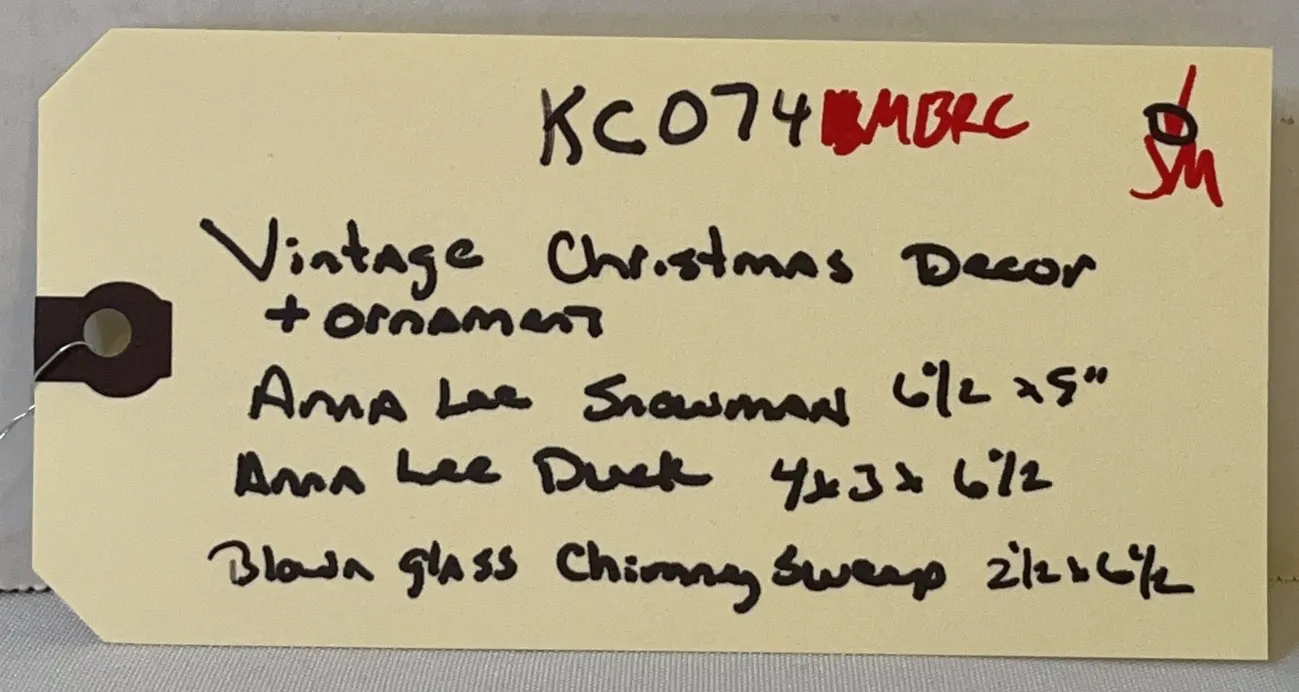 KC074 MBRC
JM
Vintage Christmas Decor
+ ornament
Anna Lee Snowman 6 1/2 x 5"
Anna Lee Duck 4x3x 6 1/2
Blown glass Chimney Sweep 2 1/2 x 6 1/2